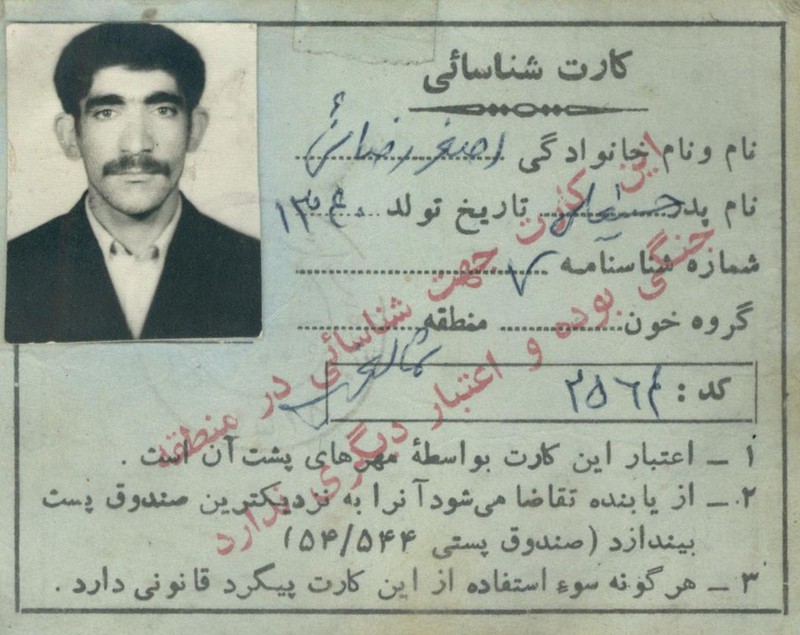 کارت شناسائی
نام ونام خانوادگی اصغر رضائی
نام پدر تاریخ تولد
شماره شناسنامه ۷
گروه خون منطقه شمالغرب
کد :
۱ ـ اعتبار این کارت بواسطهٔ مهرهای پشت آن است .
۲ ـ از یابنده تقاضا می‌شود آنرا به نزدیکترین صندوق پست
بیندازد (صندوق پستی ۵۴/۵۴۴)
۳ ـ هرگونه سوء استفاده از این کارت پیگرد قانونی دارد .
این کارت جهت شناسائی در منطقه
جنگی بوده و اعتبار دیگری ندارد